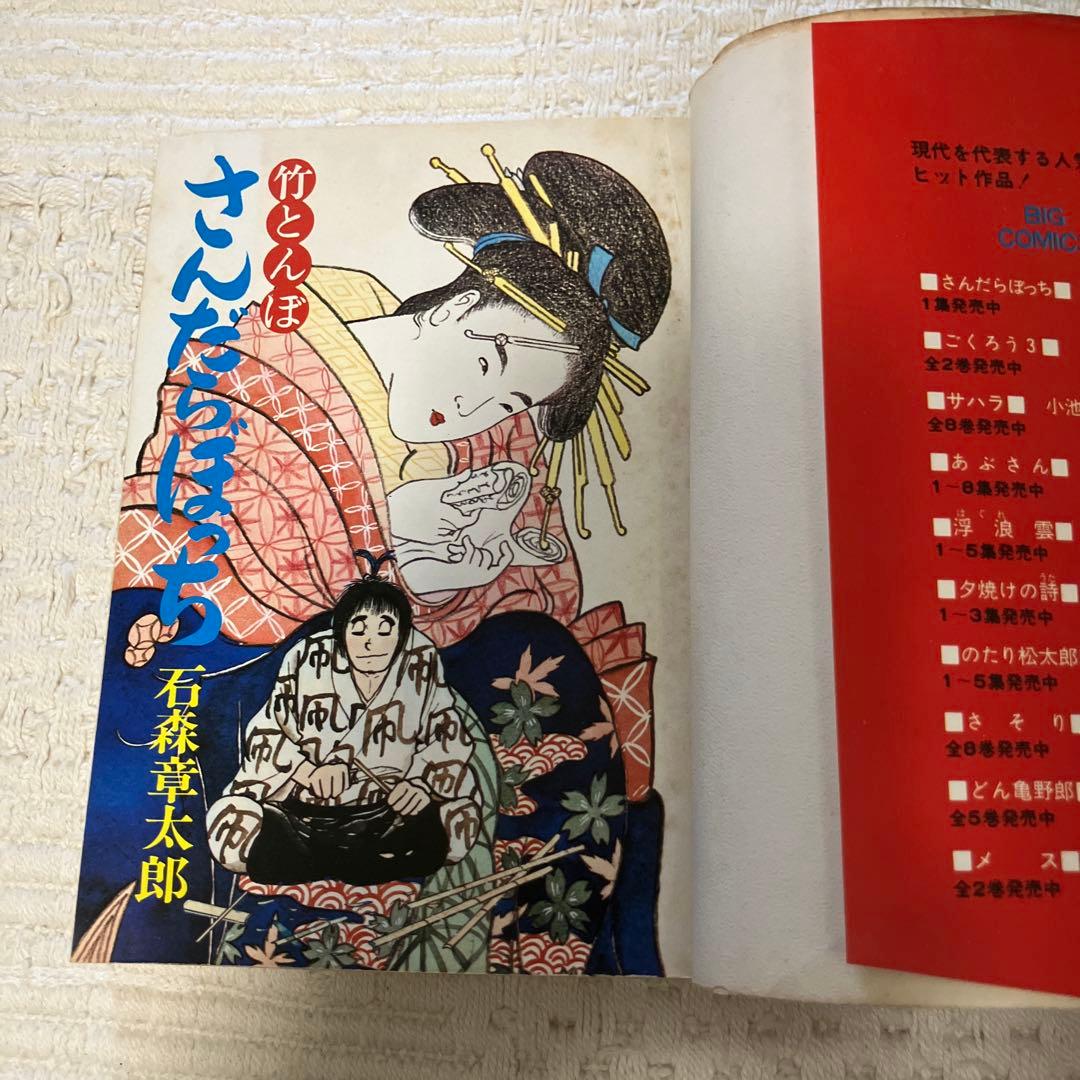 竹とんぼ
さんだらぼっち
石森章太郎
現代を代表する人
ヒット作品!
BIG
COMIC
■さんだらぼっち■
1集発売中
■ごくろう3■
全2巻発売中
■サハラ■ 小池
全8巻発売中
■あぶさん■
1〜8集発売中
はぐれ
■浮浪雲■
1〜5集発売中
うた
■夕焼けの詩■
1〜3集発売中
■のたり松太郎
1〜5集発売中
■さそり■
全8巻発売中
■どん亀野郎■
全5巻発売中
■メス■
全2巻発売中